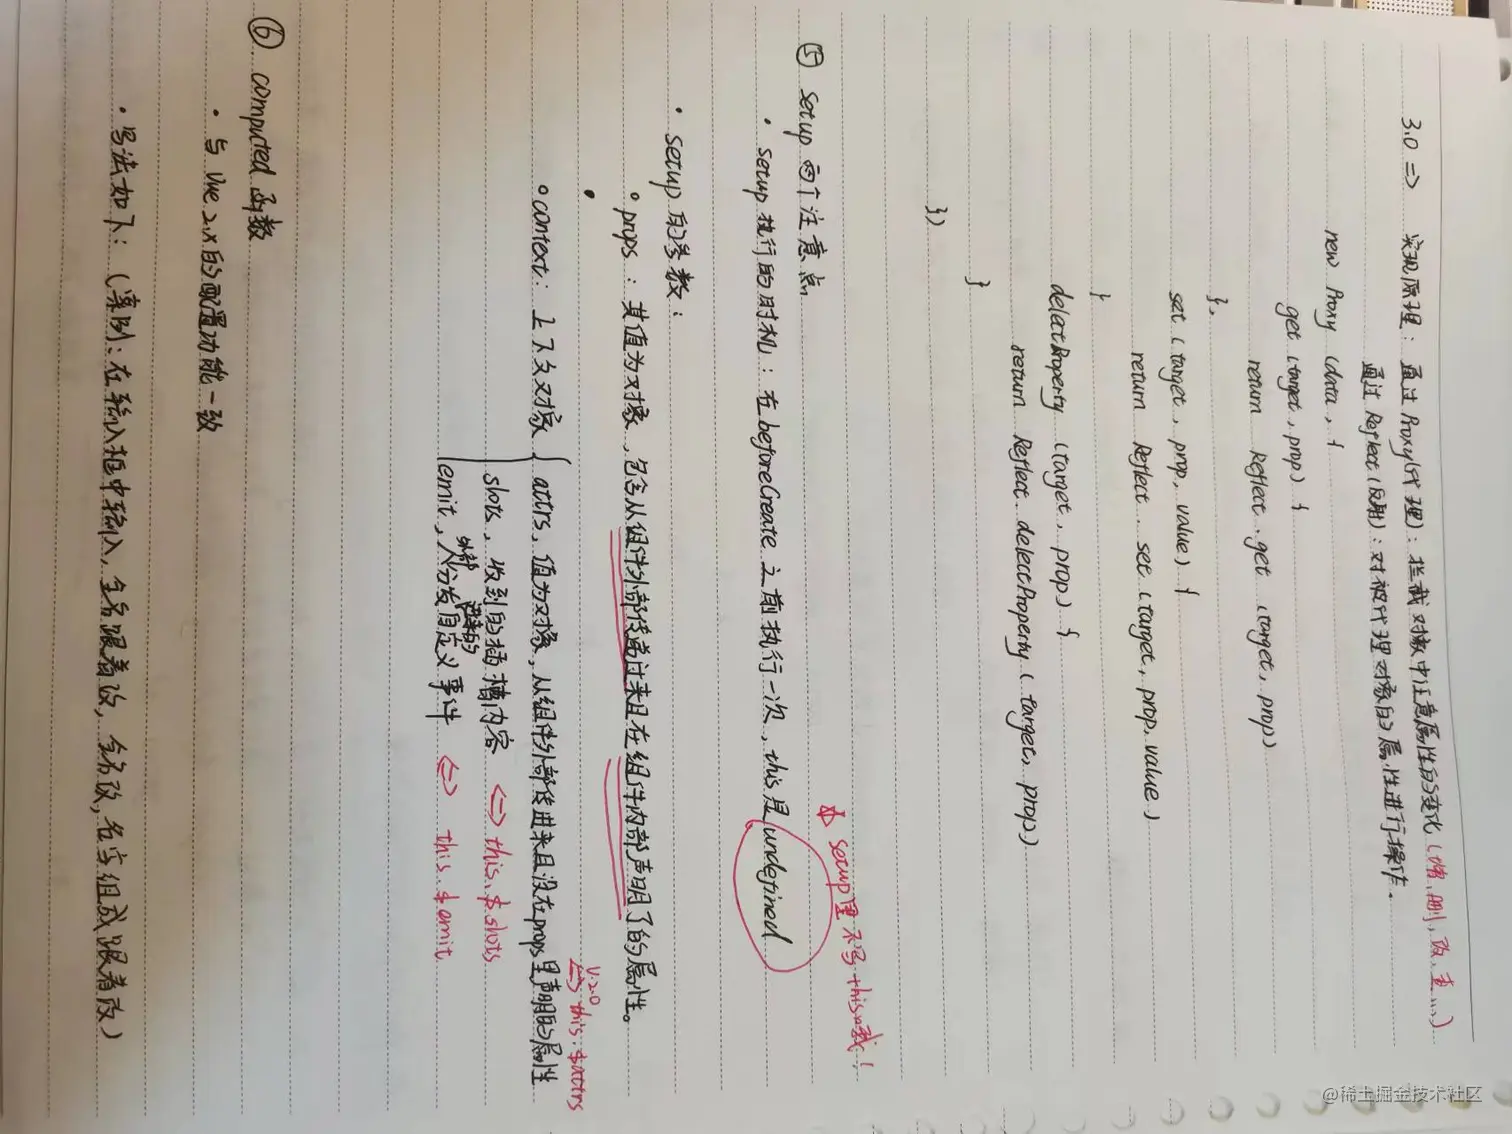 3.0 => 实现原理：通过Proxy(代理)：拦截对象中任意属性的变化(增,删,改,查...)
通过Reflect(反射)：对被代理对象的属性进行操作.
new Proxy (data, {
get (target, prop) {
return Reflect.get (target, prop)
},
set (target, prop, value) {
return Reflect.set (target, prop, value)
}
delectProperty (target, prop) {
return Reflect.delectProperty (target, prop)
}
})
☆ setup里不写this哦!
⑤ setup 两个注意点
• setup 执行的时机：在beforeCreate 之前执行一次, this是undefined
• setup 的参数：
∘ props：其值为对象，包含从组件外部传递过来且在组件内部声明了的属性。
V2.0
<=> this.$attrs
∘ context：上下文对象 { attrs, 值为对象，从组件外部传进来且没在props里声明的属性
slots, 收到的插槽内容 <=> this.$slots
emit, 分发自定义事件 <=> this.$emit
⑥ computed 函数
• 与Vue2.x的配置功能一致
• 写法如下：(案例：在输入框中输入, 全名跟着改, 全名改, 名字组成跟着改)
@稀土掘金技术社区